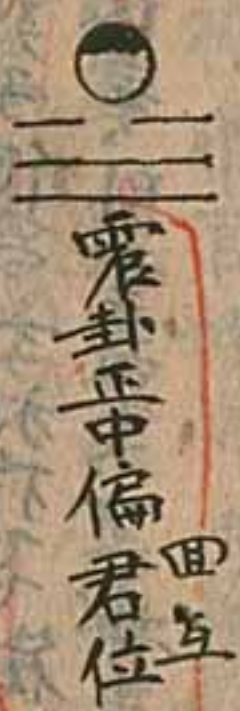 震卦正中偏君位
囬互